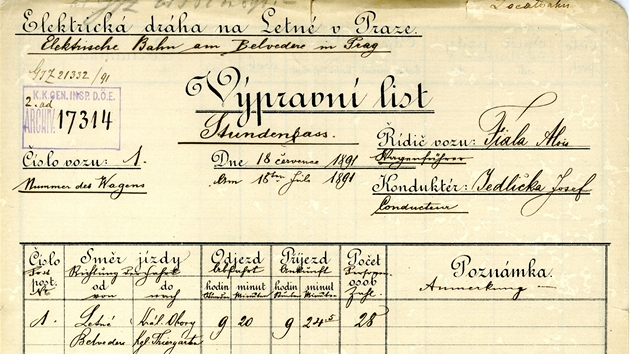 Elektrická dráha na Letné v Praze.
Elektrische Bahn am Belvedere in Prag
GIZ 21332/91
K.K. GEN. INSP. D.Ö.E.
2. ad
ARCHIV. 17314
Výpravní list
Stundenpass.
Řidič vozu: Fiala Alois
Wagenführer
Číslo vozu: 1.
Nummer des Wagens
Dne 18 července 1891
Am 18ten Juli 1891
Konduktér: Jedlička Josef
Conducteur
Číslo post. Směr jízdy Odjezd Příjezd Počet osob Poznámka.
Richtung der Fahrt Abfahrt Ankunft Anmerkung
od do hodin minut hodin minut
von nach Stunden Minuten Stunden Minuten
1. Letné Král. Obory 9 20 9 24.5 28
Belvedere Kgl. Thiergarten